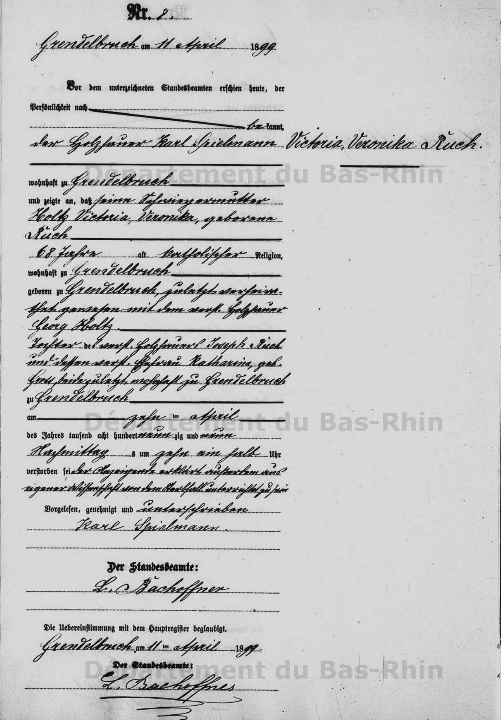 Nr. 8.
Grendelbruch am 11 April 1899
Vor dem unterzeichneten Standesbeamten erschien heute, der
Persönlichkeit nach
bekannt,
der Holzhauer Karl Spielmann
Victoria, Veronika Ruch.
Département du Bas-Rhin
wohnhaft zu Grendelbruch
und zeigte an, daß seine Schwiegermutter
Holtz Victoria, Veronika, geborene
Ruch
68 Jahre alt katholischer Religion,
wohnhaft zu Grendelbruch
geboren zu Grendelbruch, zuletzt verheira-
thet gewesen mit dem verst. Holzhauer
Georg Holtz
Tochter des verst. Holzhauers Joseph Ruch
und dessen verst. Ehefrau Katharina, geb.
beide zuletzt wohnhaft zu Grendelbruch
zu Grendelbruch
am zehn ten April
Département du Bas-Rhin
des Jahres tausend acht hundert neunzig und neun
Nachmittags um zehn ein halb Uhr
verstorben sei. Der Anzeigende erklärt außerdem aus
eigener Wissenschaft von dem Sterbfall unterrichtet zu sein
Vorgelesen, genehmigt und unterschrieben
Karl Spielmann
Der Standesbeamte:
L. Bachoffner
Die Uebereinstimmung mit dem Hauptregister beglaubigt.
Grendelbruch am 11 ten April 1899
Département du Bas-Rhin
Der Standesbeamte:
L. Bachoffner